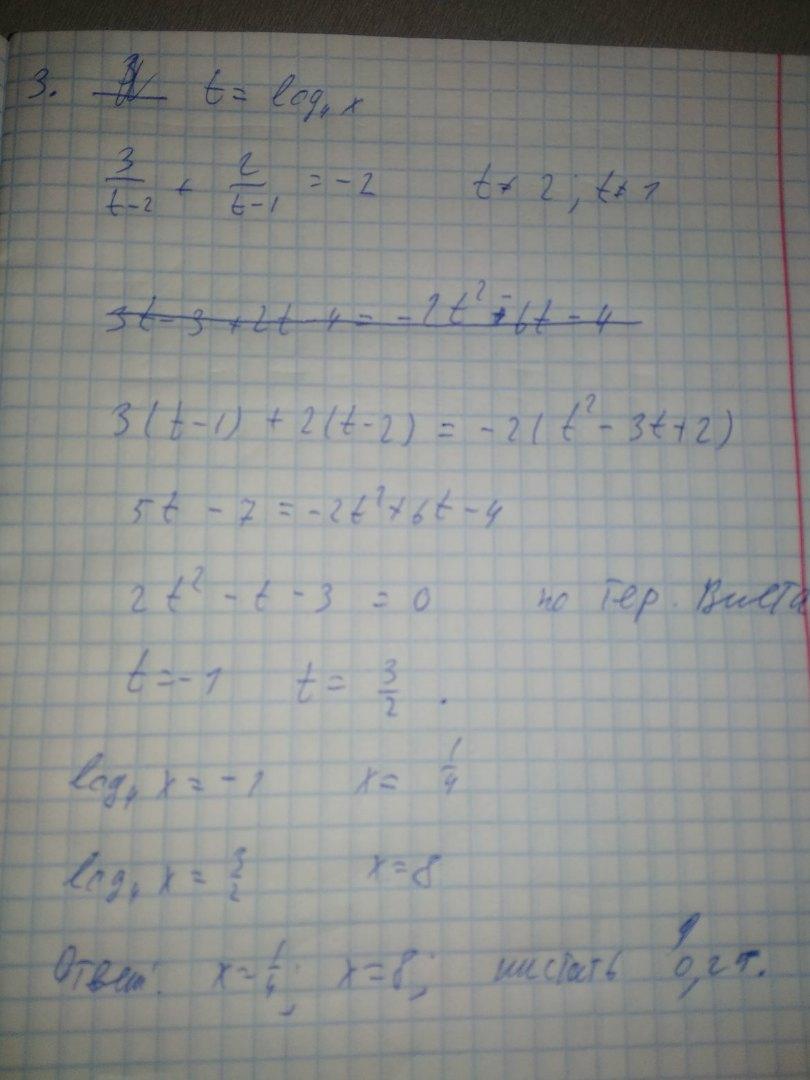 3. t = log₄ x
3/(t-2) + 2/(t-1) = -2 t ≠ 2; t ≠ 1
3t - 3 + 2t - 4 = -2t² + 6t - 4
3(t-1) + 2(t-2) = -2(t² - 3t + 2)
5t - 7 = -2t² + 6t - 4
2t² - t - 3 = 0 по тер. Виета
t = -1 t = 3/2.
log₄ x = -1 x = 1/4
log₄ x = 3/2 x = 8
Ответ: x = 1/4; x = 8; 0,25.